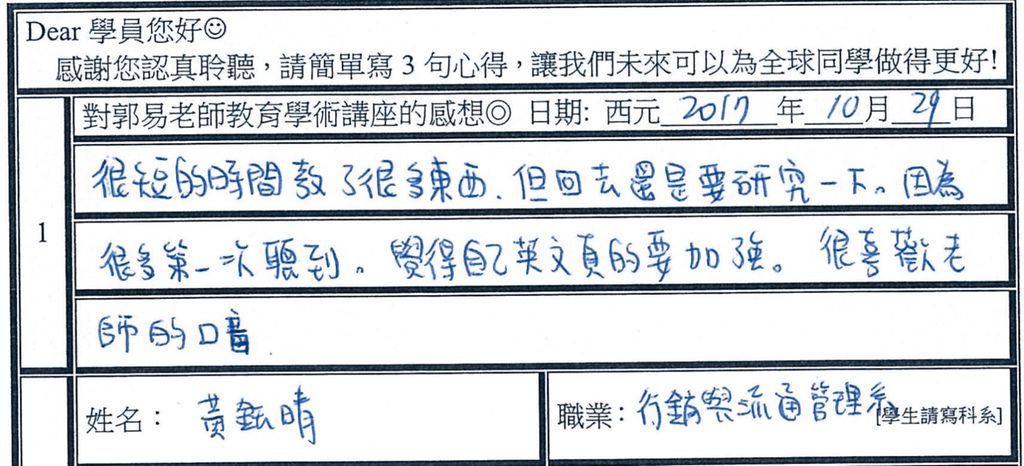 Dear 學員您好☺
感謝您認真聆聽，請簡單寫 3 句心得，讓我們未來可以為全球同學做得更好!
對郭易老師教育學術講座的感想◎ 日期: 西元 2017 年 10 月 29 日
1
很短的時間教了很多東西、但回去還是要研究一下。因為
很多第一次聽到。覺得自己英文真的要加強。很喜歡老
師的口音
姓名： 黃鈺晴
職業： 行銷與流通管理系 [學生請寫科系]